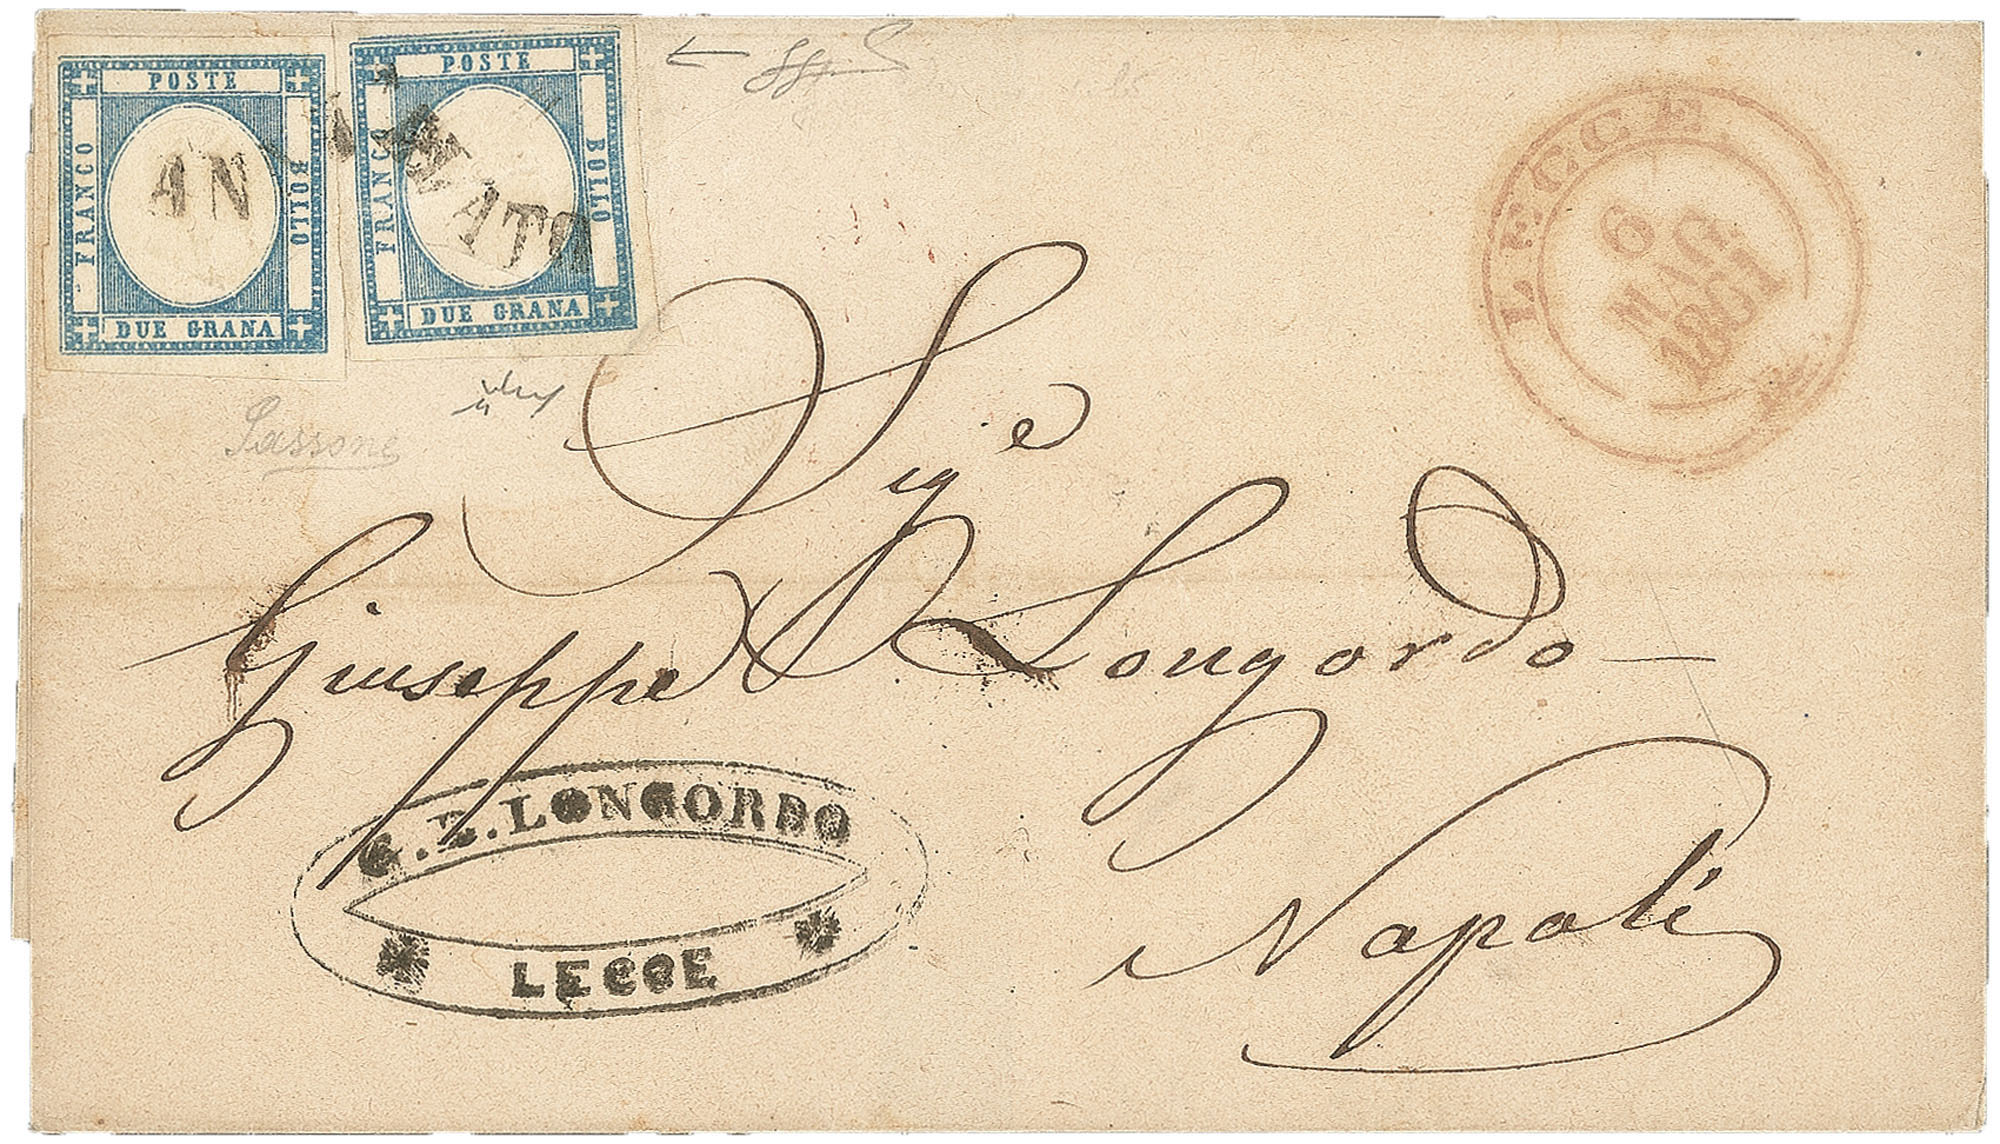 POSTE
FRANCO
BOLLO
DUE GRANA
POSTE
FRANCO
BOLLO
DUE GRANA
AN
ATO
LECCE.
6
MAG
1861
Sassone
Sig.e
Giuseppe Longordo
Napoli
LONGORDO
LECCE